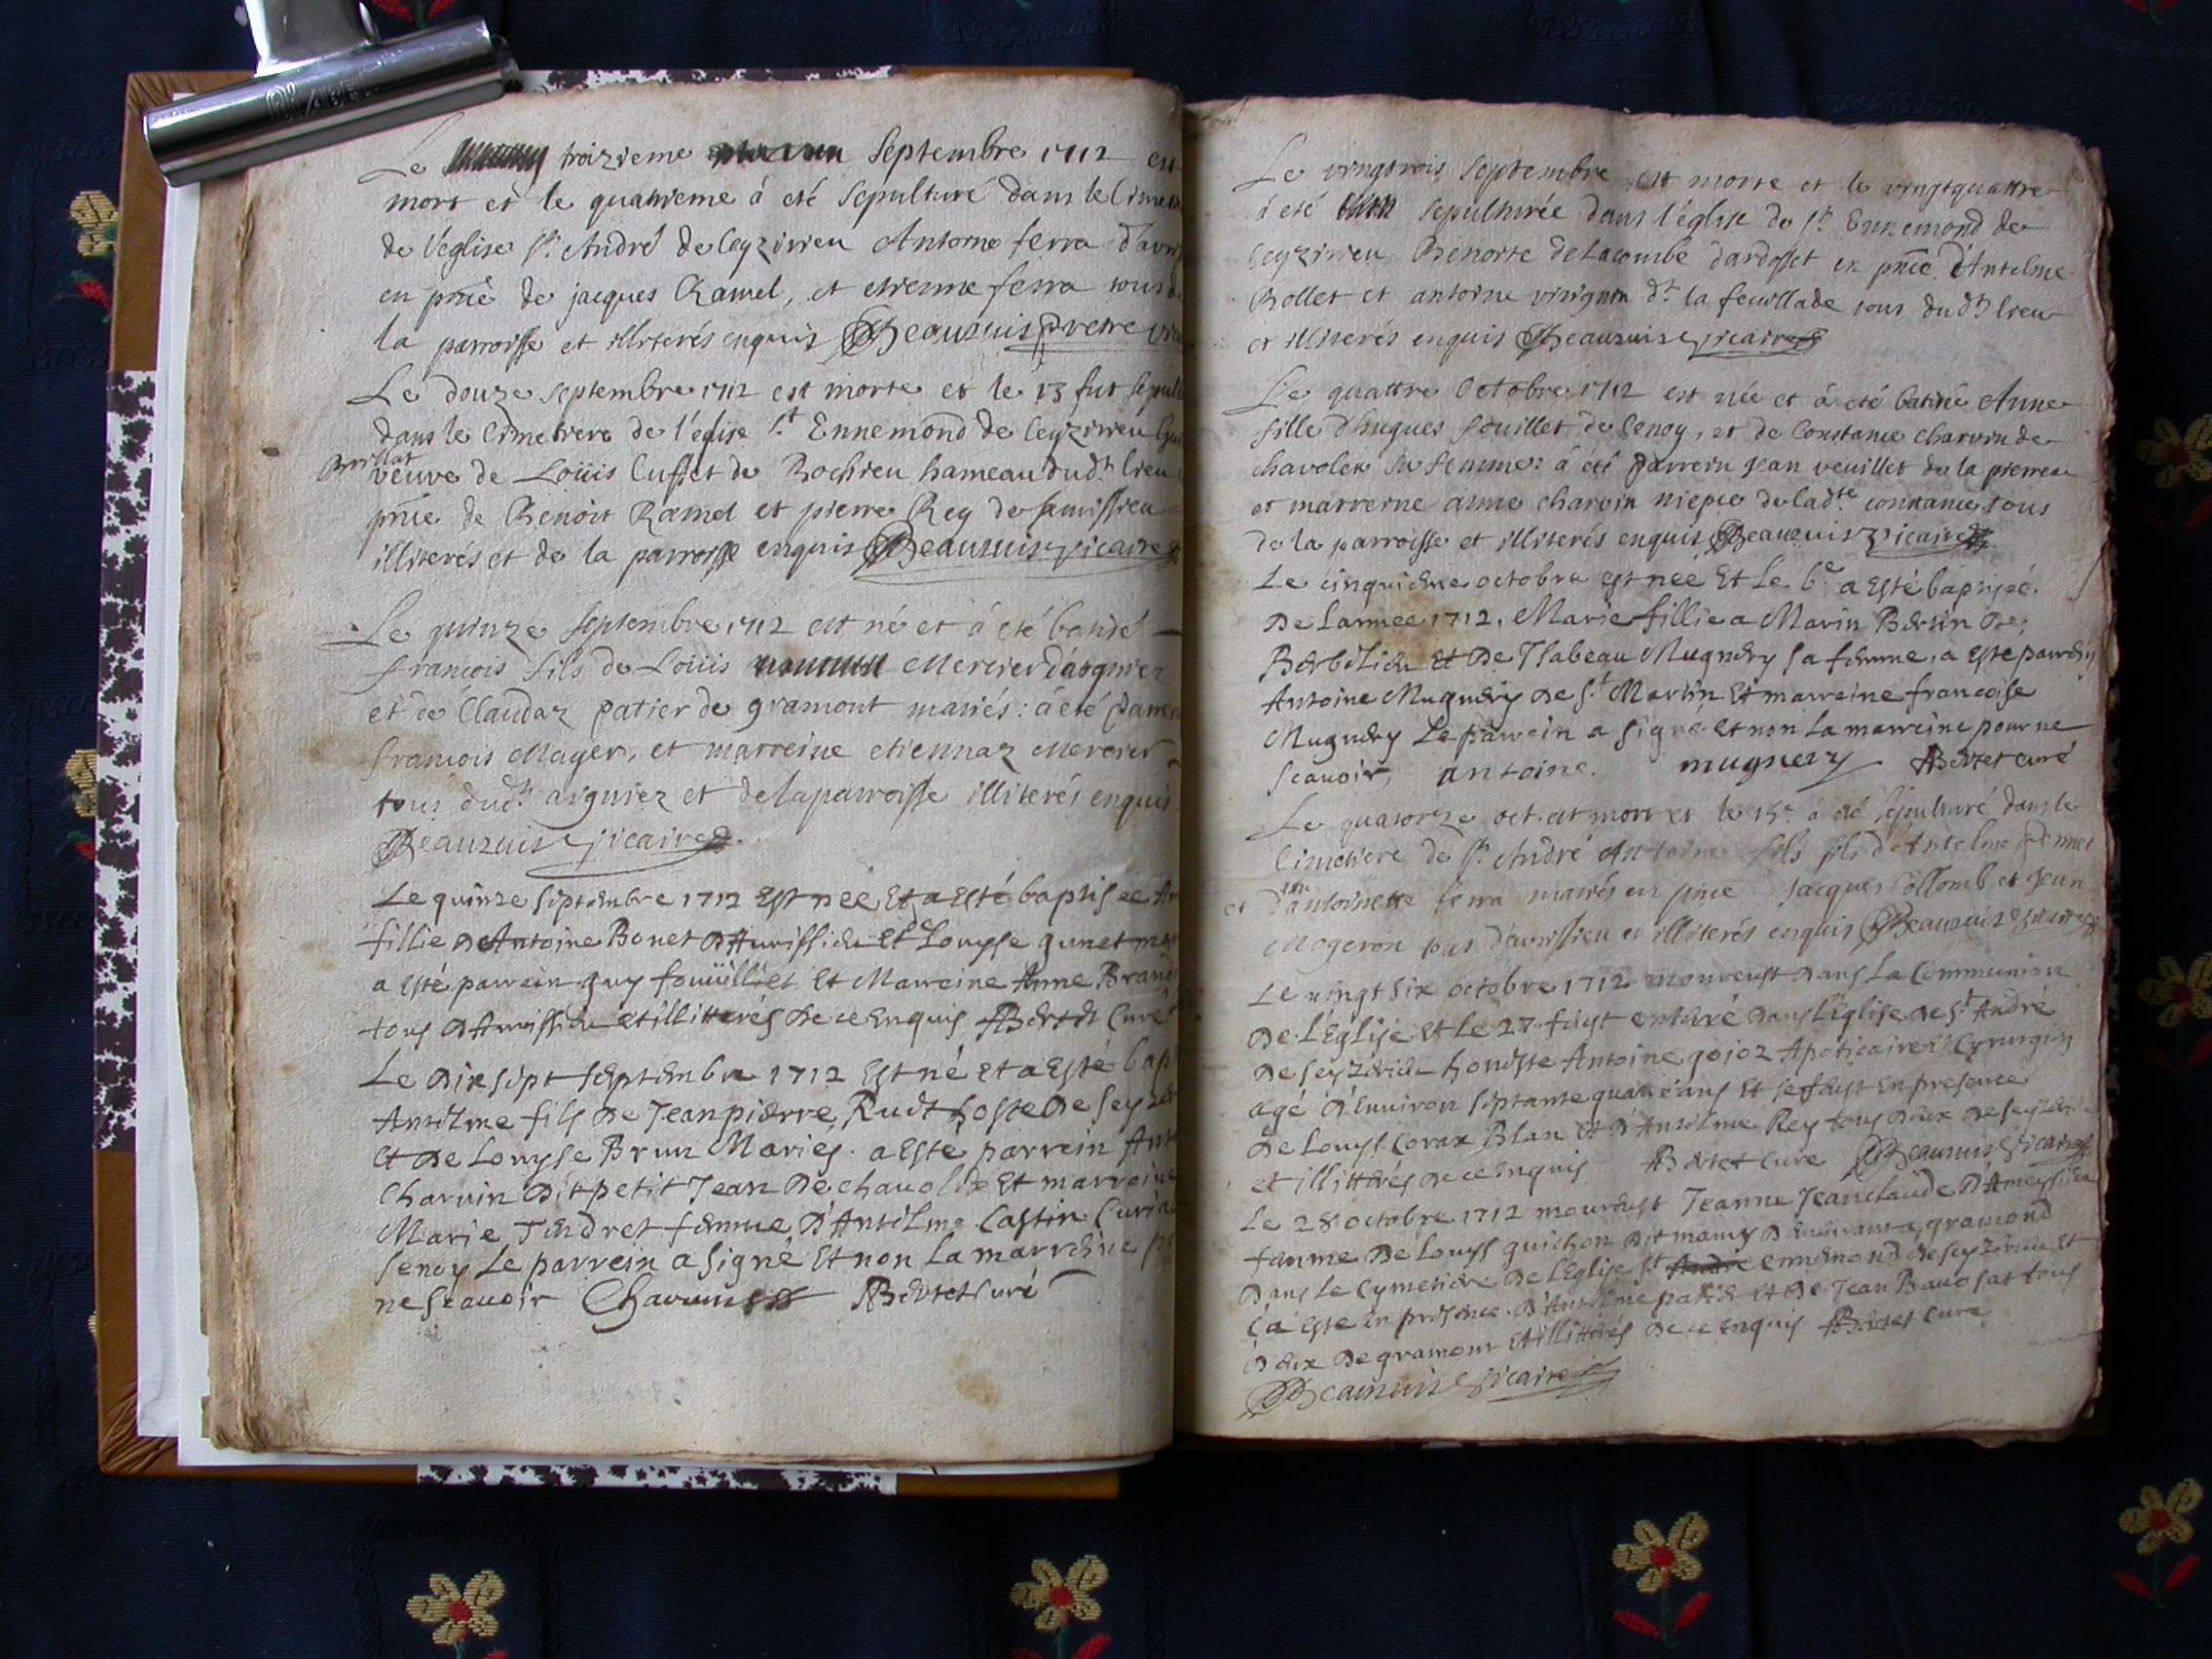 Le troizieme Septembre 1712 est
mort et le quatrieme à eté sepulturé dans le Cime
de l'eglise St. André de Ceyzirieu Antoine ferra d'avri
en pnce de jacques Ramel, et etienne ferra tous d
la parroisse et illiterés enquis Beauzuis pretre vic
Le douze septembre 1712 est morte et le 13 fut sepul
dans le Cimetiere de l'eglise St Ennemond de Ceyzirieu
veuve de Loüis Cusset de Rochieu hameau dudt lieu
pnce de Benoit Ramel et pierre Rey de
illiterés et de la parroisse enquis Beauzuis vicaire
Le quinze septembre 1712 est né et à eté batisé
francois fils de Loüis Mercier d'aigniez
et de Claudaz patier de gramont mariés: à eté parrein
francois Mayer, et marreine etiennaz Mercier
tous dudt aigniez et de la parroisse illiterés enquis
Beauzuis vicaire
Le quinze septembre 1712 Est née Et a Esté baptisée
fillie de Antoine Bonet D'Avrissieu Et Louyse gunet
a Esté parrein guy Et Marreine Anne
tous D'Avrissieu et illitterés de ce Enquis Bertet Curé
Le Dix sept septembre 1712 Est né et a Esté bap
Antelme fils de Jean pierre Rudt hoste De Seyze
et De Louyse Brun Mariés. a Esté parrein Ant
Charvin Dit petit Jean De chavolex Et marreine
Marie Tendret femme D'Antelme Castin
Senoy Le parrein a signé Et non La marreine p
ne scavoir Charvin Bertet Curé
Le vingtrois Septembre est morte et le vingtquattre
à eté sepulturée dans l'église de St. Ennemond de
Ceyzirieu Benoite delacombe d'ardosset en pnce d'Antelme
Rollet et antoine dt la feuillade tous dudt lieu
et illiterés enquis Beauzuis vicaire
Le quattre Octobre 1712 est née et à eté batisée Anne
fille d'hugues fouillet de Cenoy, et de Constance charvin de
chavolex sa femme: à eté parrein jean veuillet de la pierre
et marreine anne charvin niepce de ladte constance tous
de la parroisse et illiterés enquis Beauzuis vicaire
Le cinquieme octobre est née Et Le 6e a Esté baptisée.
De L'année 1712, Marie fillie a Marin Bertin De
Et De Ysabeau Mugnery sa femme, a Esté parrein
Antoine Mugnery De St Martin Et marreine francoise
Mugnery Le parrein a signé Et non La marreine pour ne
scavoir, antoine. mugnery Bertet curé
Le quatorze oct. est mort et le 15e à eté sepulturé dans le
Cimetiere de St. André Antoine fils d'Antelme
et d'antoinette ferra mariés en pnce jacques Collomb et jean
Mogeron tous d'avrissieu et illiterés enquis Beauzuis vicaire
Le vingt six octobre 1712 mourust dans La Communion
De L'Eglise Et Le 27 fust enterré dans L'Eglise de St André
De Seyzerieu honeste Antoine gojoz Apoticaire Et Cyrurgien
agé D'Environ septante quatre ans Et se fust En presence
De Louys Corax Blan Et D'Antelme Rey tous deux de Seyzerieu
et illitterés de ce Enquis Bertet Cure Beauzuis vicaire
Le 28 octobre 1712 mourust Jeanne Jeanclaude D'Ameysieu
femme De Louys guichon dit gramond
Dans Le Cymetiere De L'Eglise St Andre ennemond de Seyzerieu Et
ç'a Esté en presence D'Antelme patier Et De Jean Bavosat tous
deux De gramont et illitterés de ce enquis Bertet Cure
Beauzuis vicaire